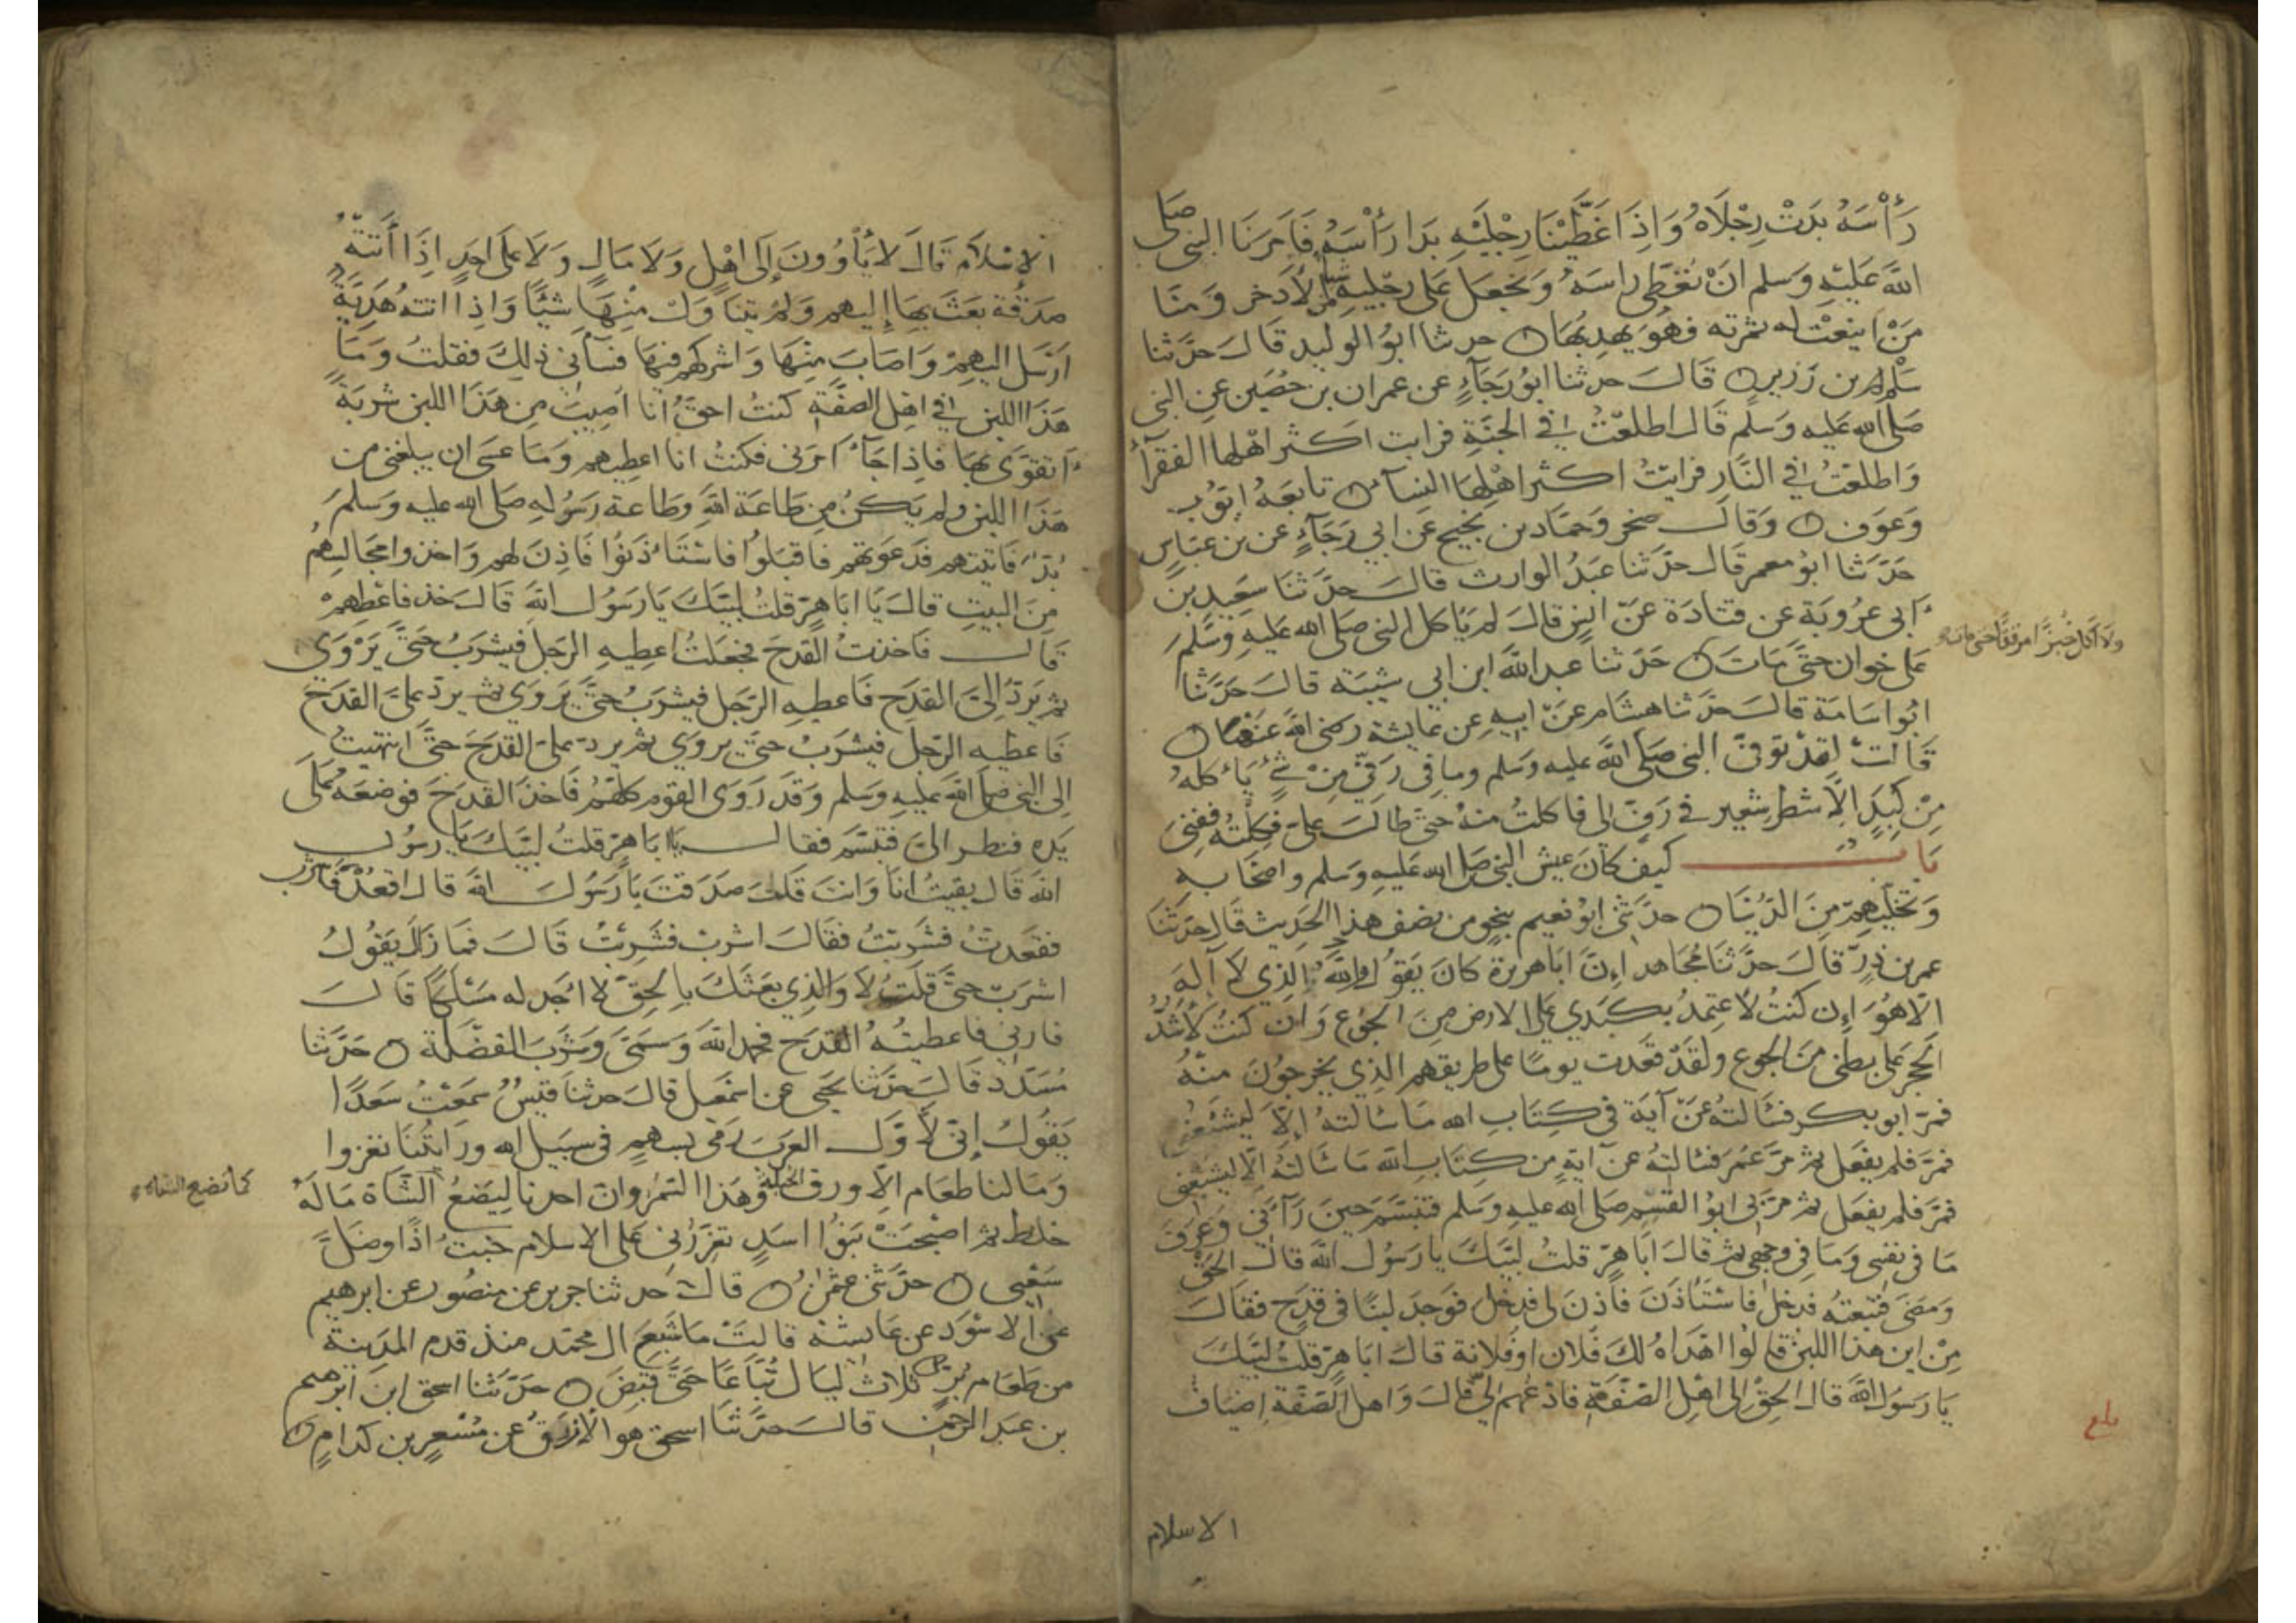 رَأْسَهُ بَدَتْ رِجْلَاهُ وَاِذَا غَطَّيْنَا رِجْلَيْهِ بَدَا رَأْسَهُ فَامَرَنَا النبى صَلى
اللهُ عَليْهِ وَسَلم انْ نُغَطِّى راسَهُ وَنجْعَل عَلى رجْليهِ الاذخر وَمنّا
مَنْ اينعَتْ له ثمرته فهُوَ يهدِبُهَا حدثنا ابوُ الوليد قَالَ حَدَّثنا
سَلْم بن زَرير قَالَ حدثنا ابوُ رَجَآءٍ عن عمران بن حُصَين عن النبى
صَلى الله عَليه وَسَلم قَال اطلعْتُ فى الجنَّةِ فرايت اكثر اهْلهَا الفقرآءُ
وَاطلعْتُ فى النَّار فرايْتُ اكثر اهْلهَا النسآء تابعَهُ ايّوُب
وَعَوف وَقَالَ صخر وَحمّاد بن نجيح عَن ابى رَجَآءٍ عن بن عبّاس
حَدّثنا ابوُ معمر قَال حدّثنا عَبدُ الوارث قالَ حدّثنا سَعِيد بن
ابى عرُوبَة عن قتادَة عَنْ انس قالَ لم يَاكل النبى صَلى الله عَليهِ وَسَلَّمَ
عَلى خوان حَتَّى مَاتَ حَدّثنا عبد الله ابن ابى شيْبَة قالَ حَدَّثنا
ولا اكل خُبزًا مرققًا حتى مات
ابوُ اسَامَة قالَ حدّثنا هشام عَنْ ابيهِ عن عايشة رضى الله عَنْهَا
قَالتْ لقدْ توفىّ النبى صَلى الله عَليه وسَلم وما فى رَفّى مِنْ شئ يَاكلهُ
مِنْ كبدٍ اِلّا شطر شعير فى رَفٍّ لى فاكلتُ منهُ حَتّى طالَ عَلىّ فكِلْتُهُ ففنى
بَابُ كيف كانَ عيش النبى صَلى الله عَليهِ وَسَلم واصْحَابه
وَتخلّيهِمْ مِنَ الدّنيَا حدّثنى ابوُ نعيم بنحوٍ من نصف هذا الحَدِيث قَال حدّثنَا
عمر بن ذرٍّ قَالَ حدّثنا مُجَاهد اِنّ ابَا هريرة كانَ يَقوُل واللهِ الذِي لَا آلهَ
الّا هُوَ اِن كنتُ لَاعتمدُ بكبَدِي عَلى الارض منَ الجُوع وَان كنتُ لَاشدُّ
الحَجَر عَلى بطنى منَ الجوع ولقدْ قعَدت يومًا على طريقهم الذِي يخرجوُنَ منهُ
فمرّ ابو بكر فسَالتهُ عَنْ آيَة فى كِتَابِ الله مَا سَالتهُ اِلّا ليُشبعَنى
فمَرّ فلم يفعَل ثم مرّ عُمَر فسَالتهُ عنْ آيةٍ من كِتَابِ الله مَا سَالتهُ اِلّا ليشبعنى
فمَرّ فلم يفعَل ثم مرّ بى ابوُ القسِم صَلى الله عَليهِ وَسَلم فتبَسّمَ حينَ رَآنى وَعَرَفَ
مَا فى نفسى وَمَا فى وجهى ثم قالَ ابَا هِرّ قلتُ لبّيْكَ يا رَسُولَ اللهِ قالَ الحَقْ
وَمَضَى فتبعتهُ فدخل فاستَاذَنَ فاذنَ لى فدخل فوَجدَ لبنًا فى قدَحٍ فقَالَ
مِنْ اين هذا اللبن قالوُا اهْدَاهُ لكَ فلان اوْ فلانة قالَ ابَا هِرّ قلتُ لبَّيكَ
يَا رَسُول اللهِ قال الحقْ اِلى اهْلِ الصّفّةِ فادْعُهم لى قالَ وَاهل الصّفّة اضيَافُ
بلغ
الاسلام
الاِسْلَامِ قَالَ لا يَأوُونَ اِلى اهْلٍ وَلَا مَالٍ وَلَا عَلى احَدٍ اِذَا أتتهُ
صَدَقَة بَعَثَ بهَا اِليهم وَلمْ يتنَاوَلْ مِنْهَا شيْئًا وَاِذَا اتتهُ هَدِيّةٌ
ارْسَل اليهِمْ وَاصَابَ مِنْهَا وَاشركهم فِيْهَا فسَآنى ذلِكَ فقلتُ وَمَا
هَذَا اللبن فى اهْل الصّفّةِ كنتُ احقّ انا اصِيبَ مِن هَذَا اللبن شربَةً
اتقوَّى بهَا فاِذا جَآءَ امَرَنى فكنتُ انا اعطِيهم وَمَا عسَى ان يبلغنى من
هَذَا اللبن ولم يَكُنْ مِن طَاعَة اللهِ وَطَاعَة رَسُوْلهِ صَلى الله عليه وَسَلمَ
بُدّ فَاتيتهم فدَعَوتهم فاقبَلوُا فاستَاذنوُا فاذنَ لهم وَاخذوا مجَالسِهُم
مِنَ البيتِ قالَ يَا ابَا هِرٍّ قلتُ لبّيْكَ يَا رَسُول اللهِ قَالَ خذ فاعْطِهِمْ
قَالَ فَاخذتُ القَدحَ فجعَلتُ اعطِيهِ الرّجلَ فيَشرَبُ حَتَّى يَرْوَى
ثم يَردّ اِلىَّ القدَحَ فَاعطِيهِ الرّجَل فيشرَبُ حَتّى يَروَى ثم يردّ علىَّ القدَحَ
فَاعطيهِ الرّجلَ فيشرَبُ حَتّى يروَى ثم يردّ علىّ القَدَحَ حَتَّى انتهيتُ
اِلى النبى صَلى الله عَليهِ وَسَلم وَقَدْ رَوَى القوم كلهُمْ فَاخذَ القدَحَ فوضعَهُ عَلى
يَدهِ فنظر الىّ فتبَسّمَ فقالَ يَا ابَا هِرٍّ قلتُ لبّيْكَ يَا رسوُل
اللهِ قَال بقيتُ انَا وَانتَ قلتُ صَدَقتَ يَا رَسُولَ اللهِ قال اقعُدْ فاشرَبْ
فقعَدتُ فشربْتُ فقَالَ اشربْ فشَربْتُ قَالَ فمَا زَالَ يَقوُلُ
اشرَبْ حتَّى قلتُ لَا وَالذِي بعَثكَ بالحَقِّ لَا اجد له مَسْلَكًا قَالَ
فارنى فَاعطيتهُ القدَح فحمد الله وَسَمّى وَشَرَبَ الفضْلَة حَدَّثنا
مُسَدّد قَالَ حدّثنا يحيى عن اسمعِيل قالَ حدثنا قيسٌ سَمعْتُ سَعدًا
يَقوُل اِنى لَاوّل العرَب رَمَى بسَهمٍ فى سَبيل الله ورايتُنا نغزوا
وَمَا لنا طعَام الّا ورَق الحبلة وَهَذا السّمر وان احدنا ليَضعُ الشّاة مَا لهُ
كما تضع الشاة
خلط ثم اصْبحَتْ بنوُا اسَدٍ تعزّرُنى عَلى الاسلام خبتُ اذًا وضَلّ
سَعْيى حدَّثنى عثمٰن قالَ حدثنا جرير عن منصُور عن ابرهيم
عن الاسْوَد عن عايشة قالَتْ مَا شبعَ ال محمّد منذ قدم المدينة
من طعَام بُرّ ثلاث ليَال تُبَاعًا حَتَّى قبضَ حَدّثنا اسحق ابن ابرهيم
بن عبد الرحمٰن قالَ حدّثنا اسحق هو الازرق عن مسْعر بن كدامٍ